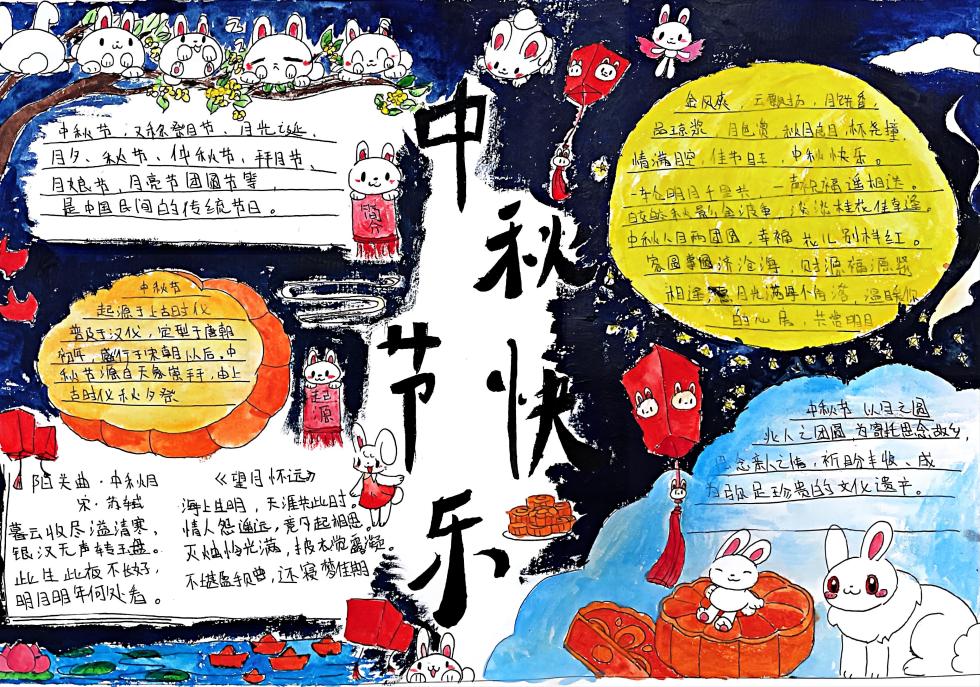 中秋节，又称祭月节、月光诞、
月夕、秋节、仲秋节、拜月节、
月娘节、月亮节团圆节等，
是中国民间的传统节日。
简介
中秋节
起源于上古时代
普及于汉代，定型于唐朝
初年，盛行于宋朝以后。中
秋节源自天象崇拜，由上
古时代秋夕祭
起源
阳关曲·中秋月
宋·苏轼
暮云收尽溢清寒，
银汉无声转玉盘。
此生此夜不长好，
明月明年何处看。
《望月怀远》
海上生明，天涯共此时。
情人怨遥远，竟夕起相思。
灭烛怜光满，披衣觉露凝
不堪盈手贝曾，还寝梦佳期
中秋节快乐
金风爽，云飘扬，月饼香，
品琼浆，月色赏，秋月良日杯老撞，
情满月空，佳节日王，中秋快乐。
一轮明月千里共，一声祝福遥相送。
秋影金波，淡淡桂花佳喜逢。
中秋人月两团圆，幸福花儿别样红。
家圆事圆沐沧海，财源福源聚
相逢月光满每个角落，温暖你
的心房，共赏明月
中秋节以月之圆
兆人之团圆，为寄托思念故乡，
思念亲人之情，祈盼丰收、成
为弥足珍贵的文化遗产。